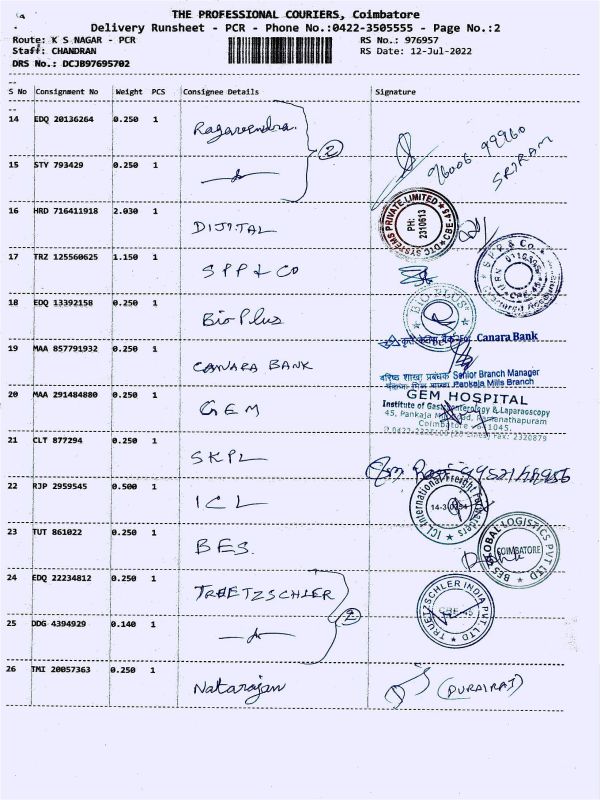 THE PROFESSIONAL COURIERS, Coimbatore
Delivery Runsheet - PCR - Phone No.:0422-3505555 - Page No.:2
Route: K S NAGAR - PCR RS No.: 976957
Staff: CHANDRAN RS Date: 12-Jul-2022
DRS No.: DCJB97695702
S No Consignment No Weight PCS Consignee Details Signature
14 EDQ 20136264 0.250 1 Ragavendra. 2
96006 99960
SRIRAM
15 STY 793429 0.250 1
16 HRD 716411918 2.030 1 DIJITAL
DTC SYSTEMS PRIVATE LIMITED ★ CBE-45 ★
PH:
2310613
17 TRZ 125560625 1.150 1 SPP & CO
S P P & Co.
CBE-45
Chartered Accountants
18 EDQ 13392158 0.250 1 Bio Plus
BIO PLUS
19 MAA 857791932 0.250 1 CANARA BANK
कृते केनरा बैंक For Canara Bank
वरिष्ठ शाखा प्रबंधक Senior Branch Manager
Pankaja Mills Branch
20 MAA 291484880 0.250 1 GEM
GEM HOSPITAL
Institute of Gastroenterology & Laparaoscopy
45, Pankaja Mill Road, Ramanathapuram
Coimbatore - 641045.
Fax: 2320879
21 CLT 877294 0.250 1 SKPL
22 RJP 2959545 0.500 1 ICL
ICL International Freight Forwarders
23 TUT 861022 0.250 1 BES.
BES GLOBAL LOGISTICS PVT LTD
COIMBATORE
24 EDQ 22234812 0.250 1 TRUETZSCHLER 2
TRUETZSCHLER INDIA PVT. LTD.
CBE-45
25 DDG 4394929 0.140 1
26 TMI 20057363 0.250 1 Natarajan
(DURAIRAJ)